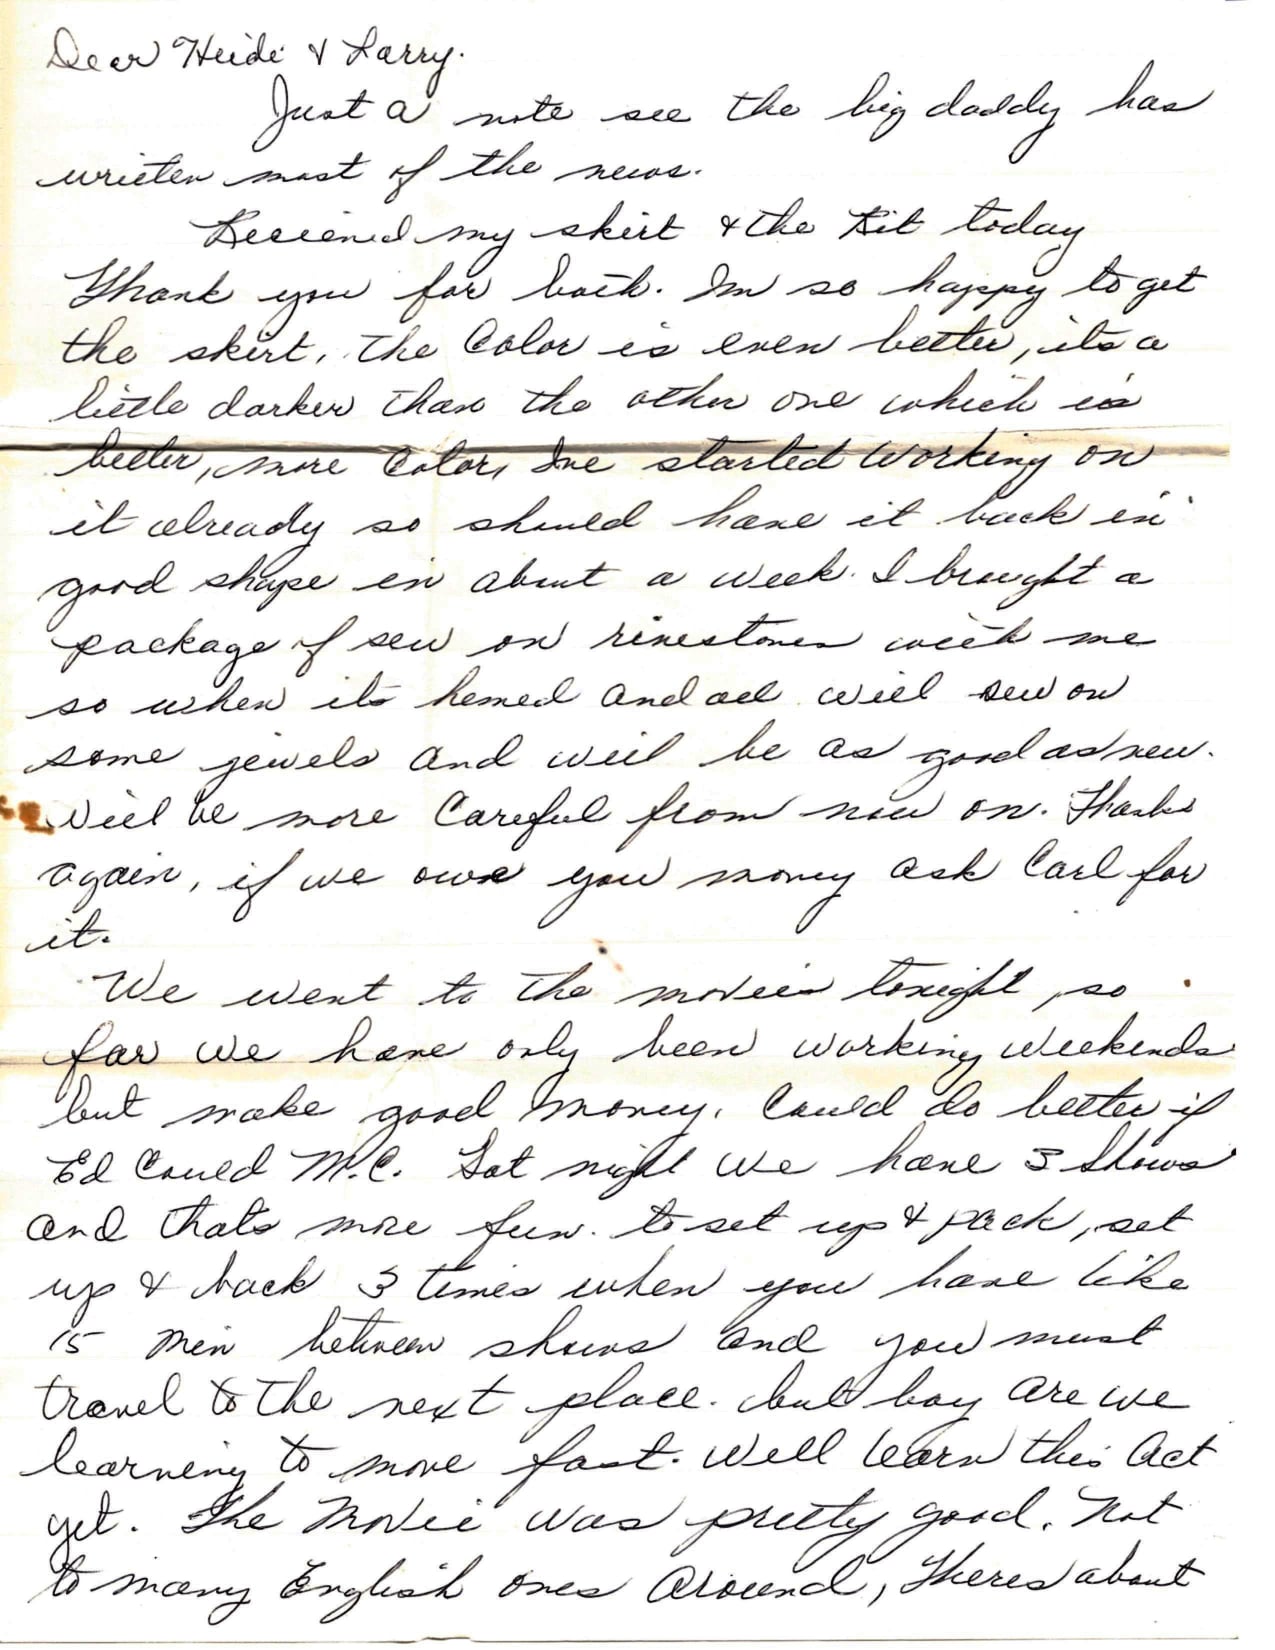 Dear Heide & Larry.
Just a note see the big daddy has
written most of the news.
Recieved my skirt & the Kit today
Thank you for both. Im so happy to get
the skirt, the Color is even better, its a
little darker than the other one which is
better, more Color, Ive started working on
it already so should have it back in
good shape in about a week. I brought a
package of sew on rinestones with me
so when its hemed and all will sew on
some jewels and will be as good as new.
Will be more Careful from now on. Thanks
again, if we owe you money ask Carl for
it.
We went to the movies tonight, so
far we have only been working weekends
but make good money. Could do better if
Ed Could M.C. Sat night we have 3 Shows
and thats more fun. to set up & pack, set
up & back 3 times when you have like
15 Min between shows and you must
travel to the next place. but boy are we
learning to move fast. Well learn this Act
yet. The Movie was pretty good. Not
to many English ones around, Theres about